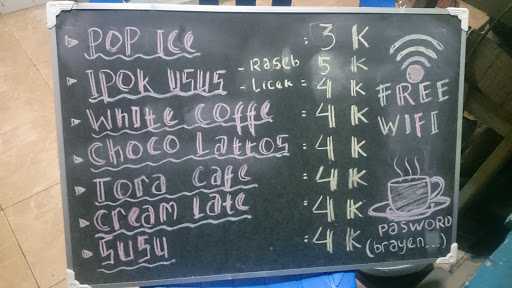 POP ICE : 3 K
IPOK USUS - Raseb 5 K
- Licek = 4 K
WhITE COFFE : 4 K
CHOCO LATTOS : 4 K
Tora cafe : 4 K
cream Late : 4 K
SUSU : 4 K
FREE
WIFI
PASWORD
(brayen...)